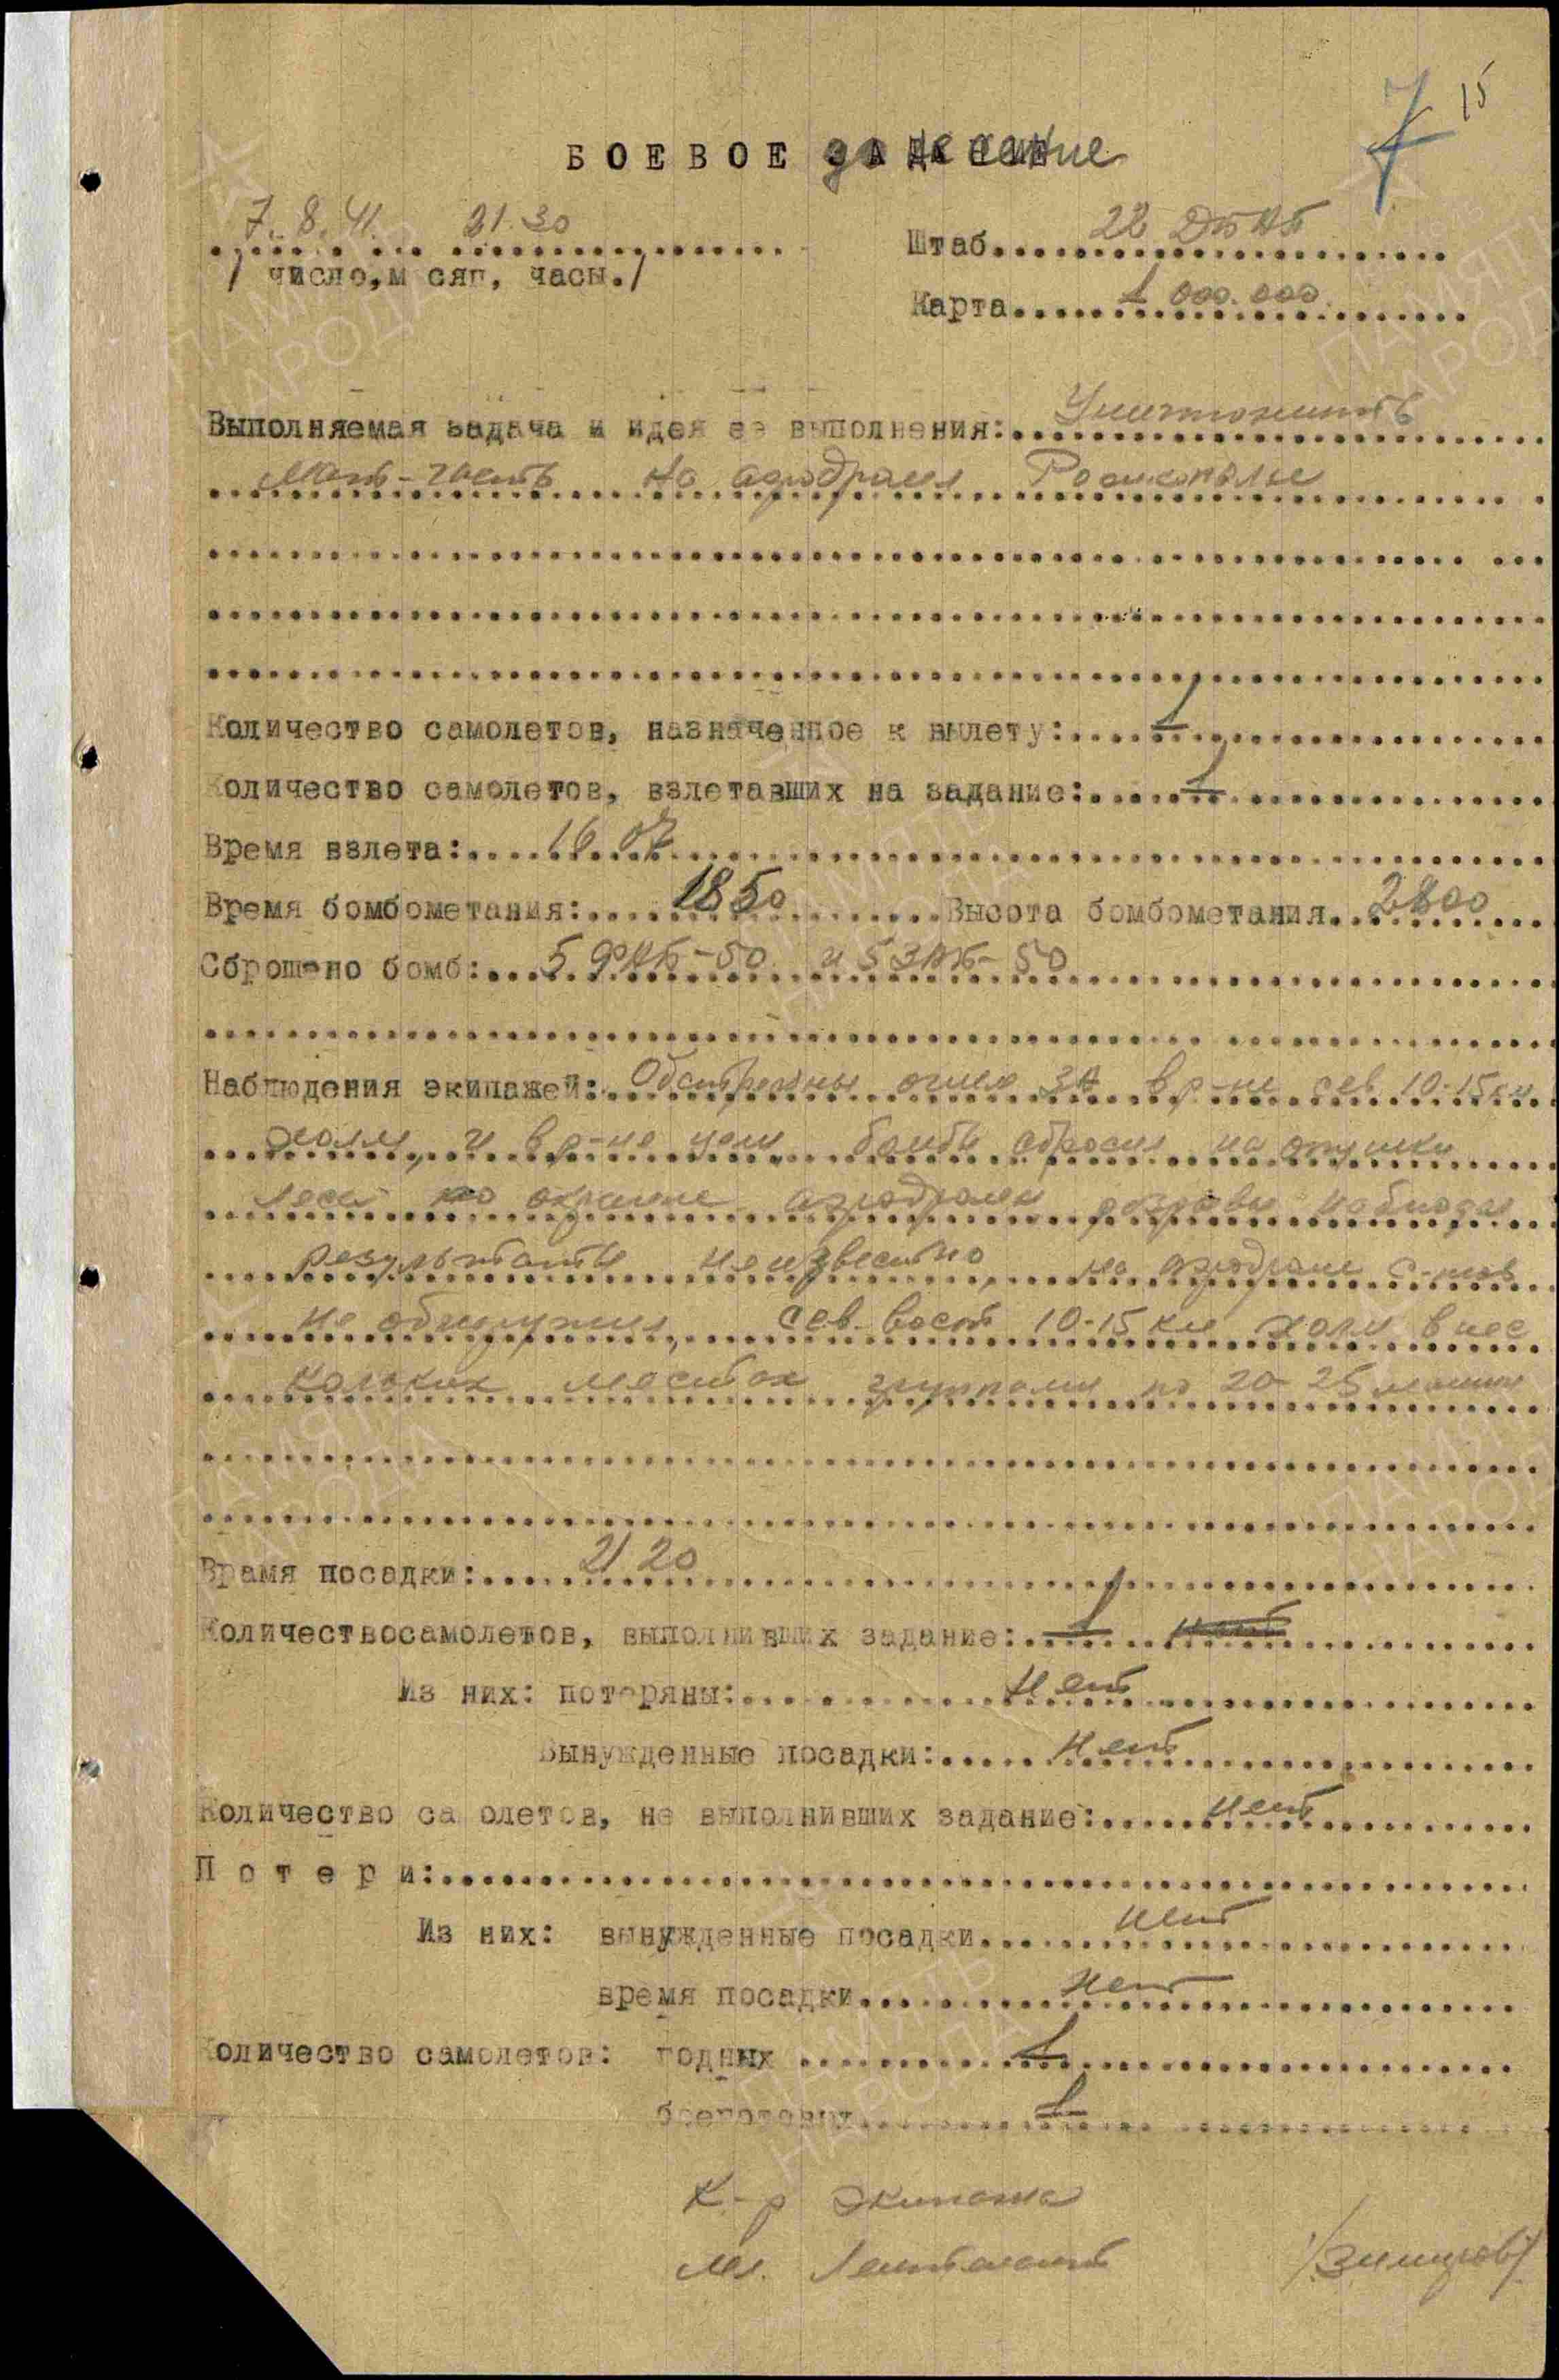 7 15
БОЕВОЕ донесение
7. 8. 41. 21.30
Штаб 22 ДБАП
/ число, м сяц, часы./
Карта 1 000.000.
Выполняемая задача и идея ее выполнения: Уничтожить
Мат-часть на аэродроме
Количество самолетов, назначенное к вылету: 1
Количество самолетов, взлетавших на задание: 1
Время взлета: 16 07
Время бомбометания: 18 50 Высота бомбометания 2800
Сброшено бомб: 5 ФАБ-50 и 5 ЗАБ-50
Наблюдения экипажей: Обстреляны огнем ЗА в р-не сев 10-15 км
холм, и в р-не цели, бомбы сбросил на опушки
леса по окраине аэродрома разрывы наблюдал
результаты неизвестно, на аэродроме с-тов
не обнаружил, сев. вост 10-15 км холм в нес
кольких местах группами по 20-25 машин
Врамя посадки: 21 20
Количествосамолетов, выполнивших задание: 1
Из них: потеряны: нет
Вынужденные посадки: нет
Количество са олетов, не выполнивших задание: нет
П о т е р и:
Из них: вынужденные посадки нет
время посадки нет
Количество самолетов: годных 1
боеготовых 1
К-р экипажа
Мл. Лейтенант
ПАМЯТЬ
НАРОДА